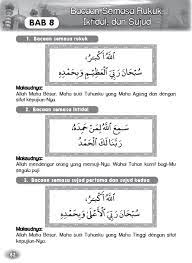 BAB 8
Bacaan Semasa Rukuk,
Iktidal, dan Sujud
1. Bacaan semasa rukuk
اَللّٰهُ أَكْبَرُ،
سُبْحَانَ رَبِّيَ الْعَظِيْمِ وَبِحَمْدِهِ
Maksudnya:
Allah Maha Besar. Maha suci Tuhanku yang Maha Agung dan dengan
sifat kepujian-Nya.
2. Bacaan semasa iktidal
سَمِعَ اللّٰهُ لِمَنْ حَمِدَهُ
رَبَّنَا لَكَ الْحَمْدُ
Maksudnya:
Allah mendengar orang yang memuji-Nya. Wahai Tuhan kami! bagi-Mu
segala puji.
3. Bacaan semasa sujud pertama dan sujud kedua
اَللّٰهُ أَكْبَرُ،
سُبْحَانَ رَبِّيَ الْأَعْلَى وَبِحَمْدِهِ
Maksudnya:
Allah Maha Besar. Maha suci Tuhanku yang Maha Tinggi dengan sifat
kepujian-Nya.